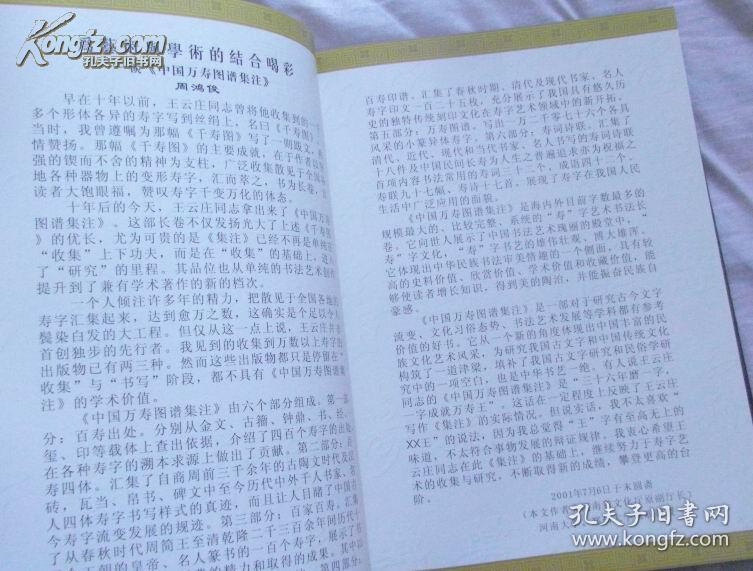 Kongfz.com
孔夫子旧书网
學術的結合喝彩
读《中国万寿图谱集注》
周鸿俊
早在十年以前，王云庄同志曾将他收集到的
多个形体各异的寿字写到丝绢上，名曰《千寿图》
当时，我曾遵嘱为那幅《千寿图》写了一则跋文，
情赞扬。那幅《千寿图》的主要成就，在于作者以
强的锲而不舍的精神为支柱，广泛收集散见于全国
地各种器物上的变形寿字，汇而萃之，书为长卷，
读者大饱眼福，赞叹寿字千变万化的体态。
十年后的今天，王云庄同志拿出来了《中国万
图谱集注》。这部长卷不仅发扬光大了上述《千寿
》的优长，尤为可贵的是《集注》已经不再是单纯
“收集”上下功夫，而是在“收集”的基础上，进入
了“研究”的里程。其品位也从单纯的书法艺术创作
提升到了兼有学术著作的新的档次。
一个人倾注许多年的精力，把散见于全国各地
寿字汇集起来，达到愈万之数，这确实是个足以令人
鬓染白发的大工程。但仅从这一点上说，王云庄并
首创独步的先行者。我见到的收集到万数以上寿字
出版物已有两三种。然而这些出版物都只是停留在“
收集”与“书写”阶段，都不具有《中国万寿图谱集
注》的学术价值。
《中国万寿图谱集注》由六个部分组成。第一
分：百寿出处。分别从金文、古籀、钟鼎、书、经、
玺、印等载体上查出依据，介绍了四百个寿字的出处
在各种寿字的溯本求源上做出了贡献。第二部分：
寿四体。汇集了自商周前三千余年的古陶文时代及
砖，瓦当、帛书、碑文中至今历代中外千人书家、
人四体寿字书写样式的真迹，而且让人目睹了中国
今寿字流变发展的规迹。第三部分：百家百寿。汇
了从春秋时代周简王至清乾隆二千三百余年间历代
个王朝的皇帝、名人篆书的一百个寿字，展示了
的精力和取得的成果。第四部分：
百寿印谱。汇集了春秋时期、清代及现代书家、名人
寿字印文一百二十五枚，充分展示了我国具有悠久历
史的独特传统刻印文化在寿字艺术领域中的新开拓。
第五部分：万寿图谱。写出一万二千零七十六个各具
风采的小篆异体寿字。第六部分：寿词诗联。汇集了
清代、近代、现代和当代书家、名人书写的寿词诗联
十八件及中国民间长寿为人生之普遍追求亦为祝福之
首项内容书法常用的寿词三十二个，成语四十二个、
寿联九十七幅，寿诗十七首，展现了寿字在我国人民
生活中广泛应用的面貌。
《中国万寿图谱集注》是海内外目前字数最多的
规模最大的、比较完整、系统的“寿”字艺术书法长
卷。它向世人展示了中国书法艺术瑰丽的殿堂中，“
寿”字文化，“寿”字书艺的雄伟壮观、博大雄浑。
它体现出中华民族书法审美情趣的一个侧面，具有较
高的史料价值、欣赏价值、学术价值和收藏价值，能
够使读者增长知识，得到美的陶冶，并能振奋民族自
豪感。
《中国万寿图谱集注》是一部对于研究古今文字
流变、文化习俗态势、书法艺术发展等学科都有参考
价值的好书。它从一个新的角度体现出中国丰富的民
族文化艺术风采，为研究我国古文字和中国传统文化
构筑了一道津梁，填补了我国古文字研究和民俗学研
究中的一项空白，也是中华书艺一绝。有人说王云庄
同志的《中国万寿图谱集注》是“三十六年磨一字，
一字成就万寿王”，这话在一定程度上反映了王云庄
写作《集注》的实际情况。但说实话，我不太喜欢“
XX王”的说法，因为我总觉得“王”字有至高无上的
味道，不太符合事物发展的辩证规律。我衷心希望王
云庄同志在此《集注》的基础上，继续努力于寿字艺
术的收集与研究，不断取得新的成绩，攀登更高的台
阶。
2001年7月6日于末圆斋
（本文作者
文化厅原副厅长
河南
Kongfz.com
孔夫子旧书网